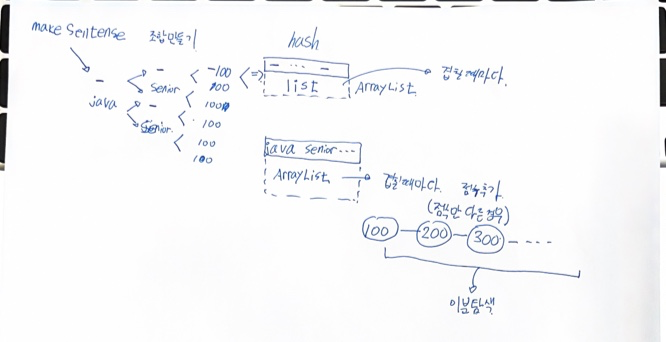 make Sentense 조합만들기
hash
- -100
- Senior 100
java - 100
Senior. 100
100
100
- ... -
list ArrayList. 겹칠때마다.
java senior...
ArrayList 겹칠때마다. 점수추가.
(점수만 다른경우)
100 - 200 - 300 - ....
이분탐색